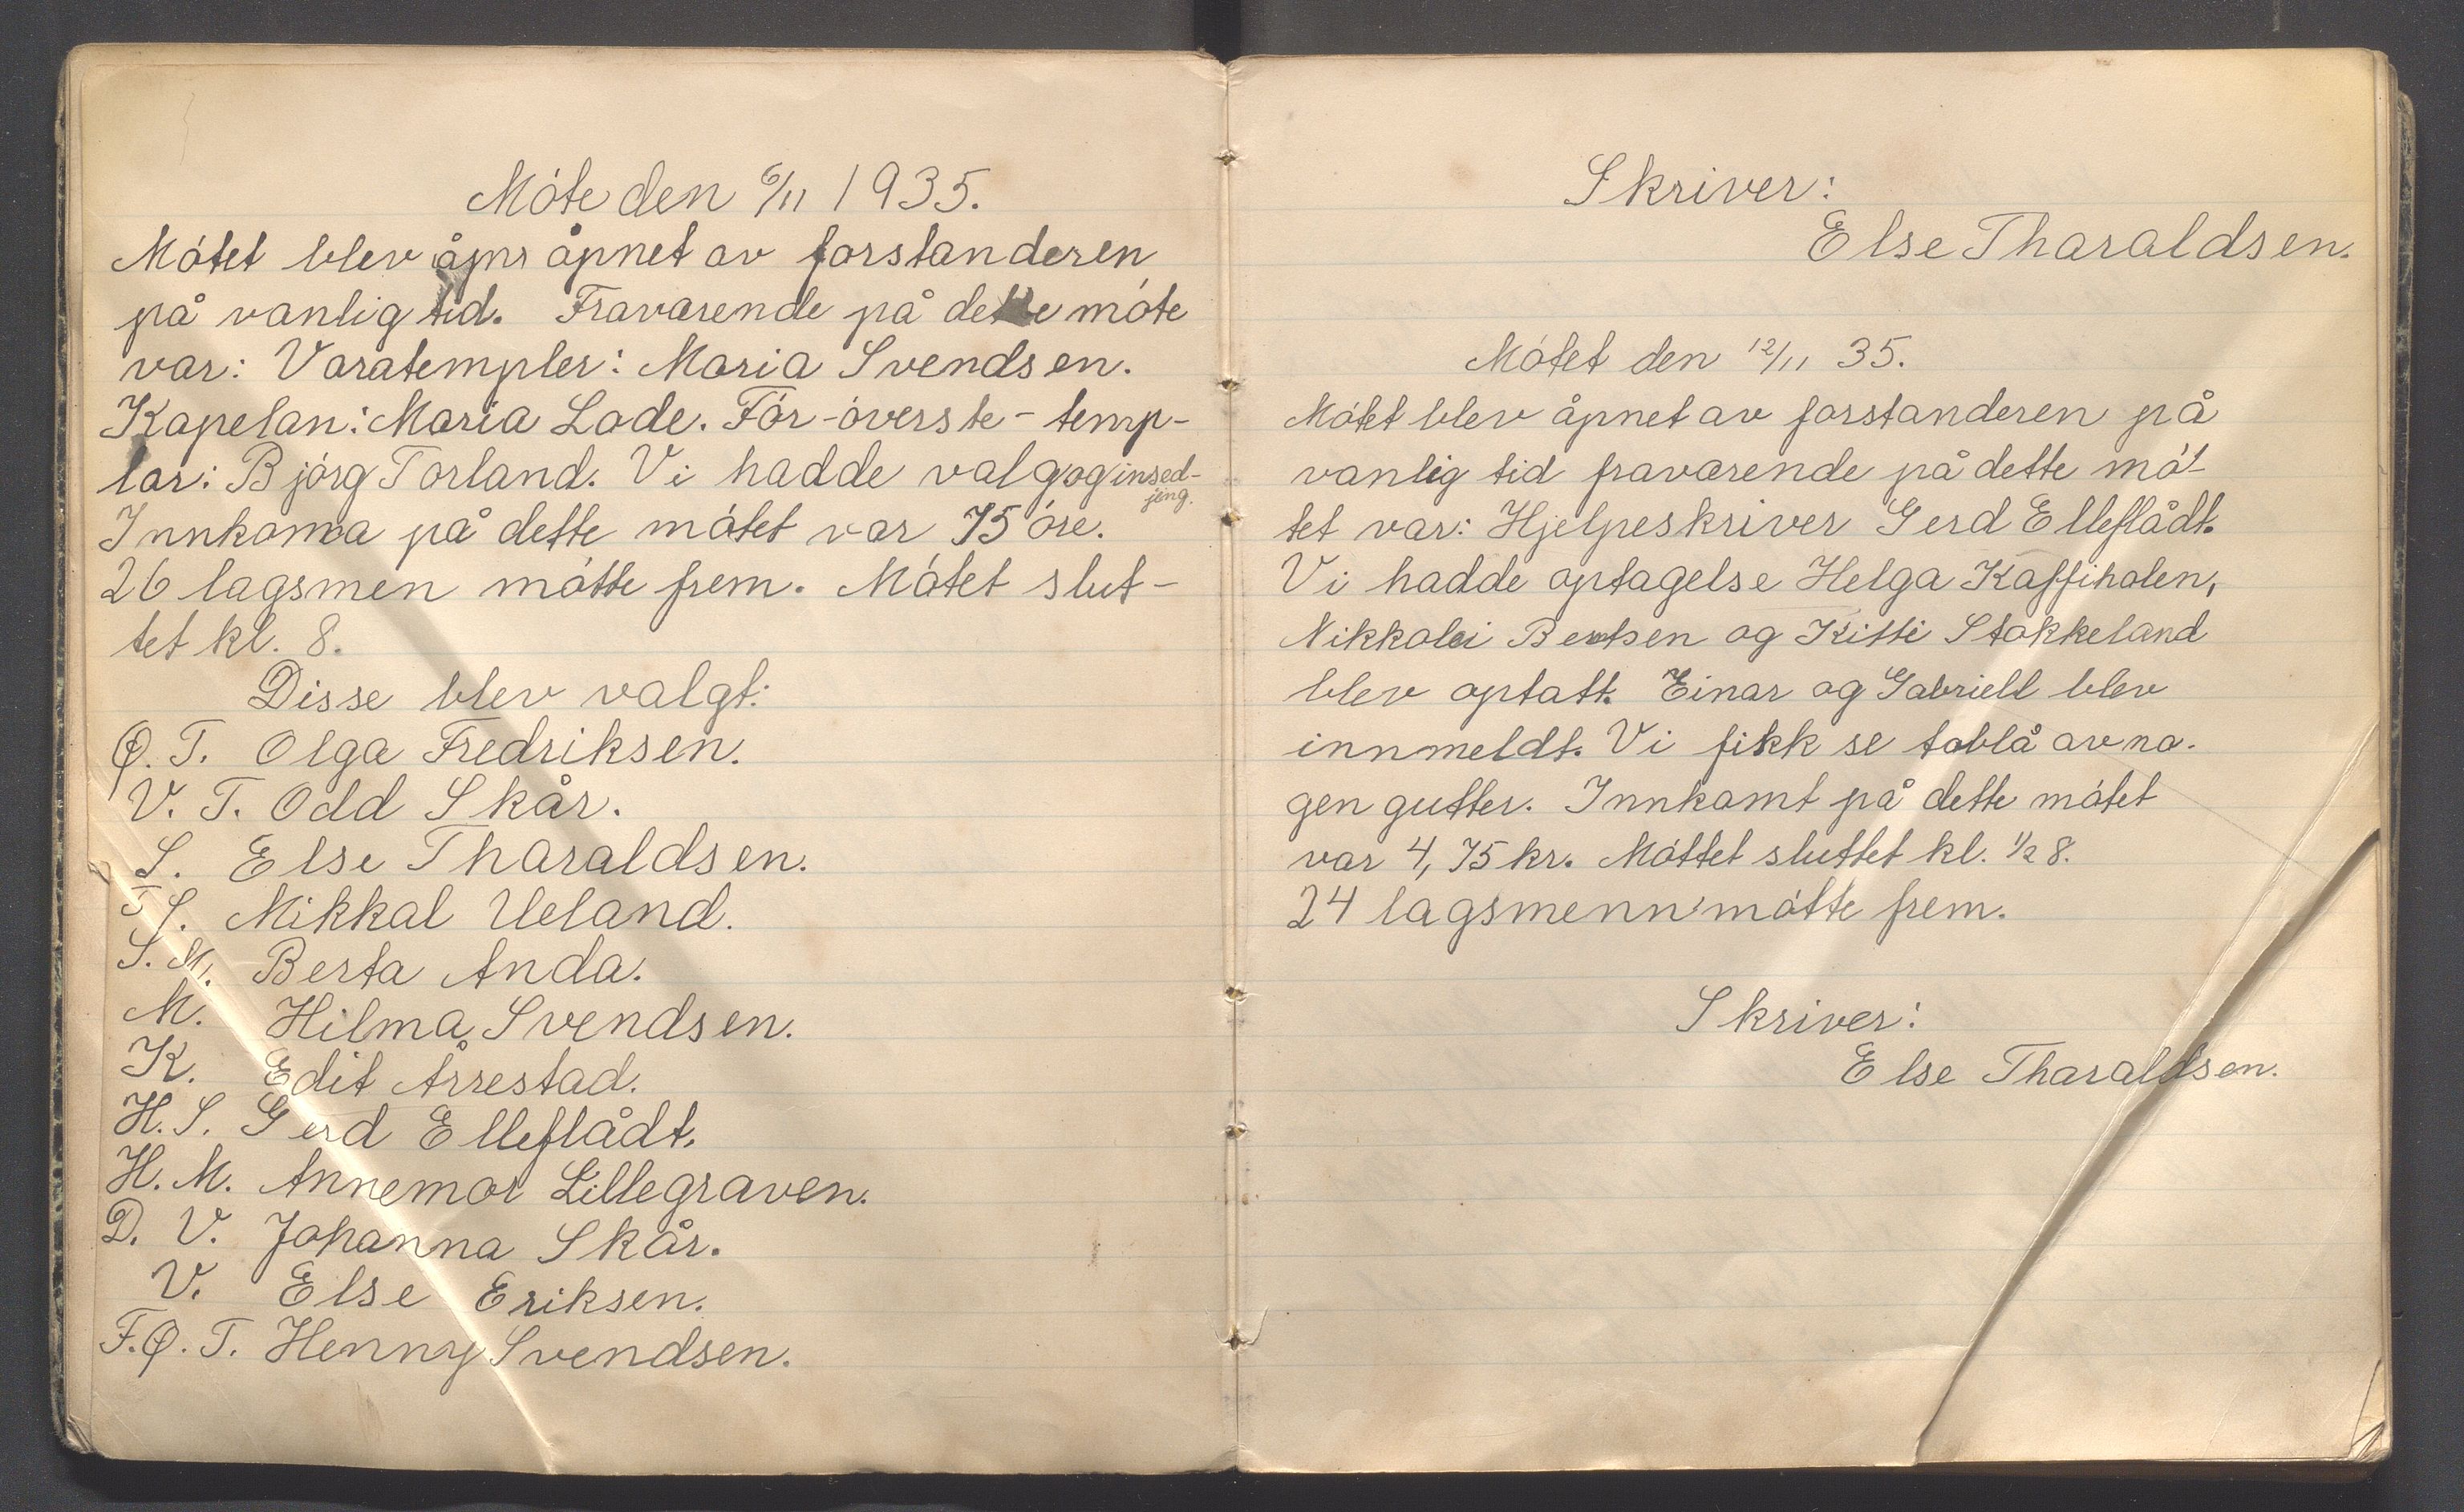 Móte den 6/11 1935.
Mótet blev åpnr åpnet av forstanderen
på vanlig tid. Fraværende på dette móte
var: Varatempler: Maria Svendsen.
Kapelan: Maria Lode. Fór-óverste-temp-
lar: Bjórg Torland. Vi hadde valg og insed-
jing.
Innkoma på dette mótet var 75 óre.
26 lagsmen mótte frem. Mótet slut-
tet kl. 8.
Disse blev valgt:
Ø. T. Olga Fredriksen.
V. T. Odd Skår.
S. Else Tharaldsen.
F S. Mikkal Ueland.
S. M. Berta Anda.
M. Hilma Svendsen.
K. Edit Årrestad.
H. S. Gerd Elleflådt.
H. M. Annemor Lillegraven.
D. V. Johanna Skår.
V. Else Eriksen.
F.Ø.T. Henny Svendsen.
Skriver:
Else Tharaldsen.
Mótet den 12/11 35.
Mótet blev åpnet av forstanderen på
vanlig tid fraværende på dette mót-
tet var: Hjelpeskriver Gerd Elleflådt.
Vi hadde optagelse Helga Kaffiholen,
Nikkolai Bentsen og Kitti Stokkeland
blev optatt. Einar og Gabriell blev
innmeldt. Vi fikk se tablå av no-
gen gutter. Innkomt på dette mótet
var 4,75 kr. Móttet sluttet kl. 1/2 8.
24 lagsmenn mótte frem.
Skriver:
Else Tharaldsen.